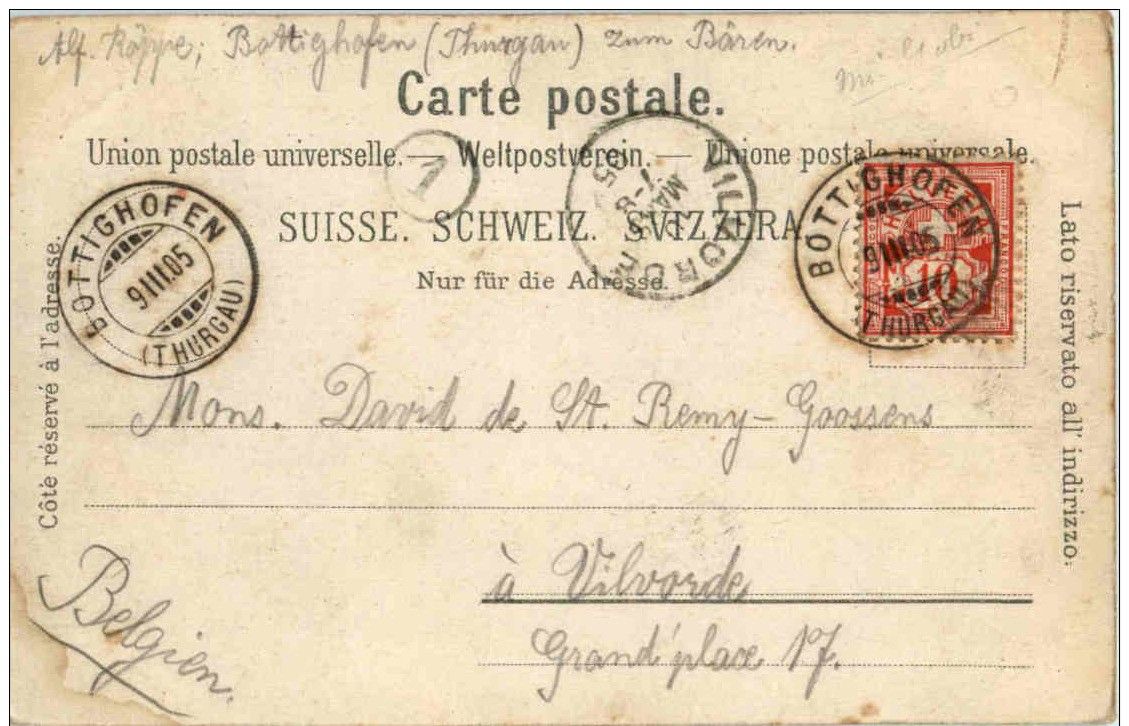 Alf. Köppe; Bottighofen (Thurgau) zum Bären.
Carte postale.
Union postale universelle. — Weltpostverein. — Unione postale universale.
1
SUISSE. SCHWEIZ. SVIZZERA
Nur für die Adresse.
BOTTIGHOFEN
9 III.05
(THURGAU)
VILVORDE
MARS
05
BOTTIGHOFEN
9 III.05
(THURGAU)
10
Côté réservé à l'adresse.
Lato riservato all' indirizzo.
Mons. David de St. Remy-Goossens
à Vilvorde
Grand'place 17.
Belgien.